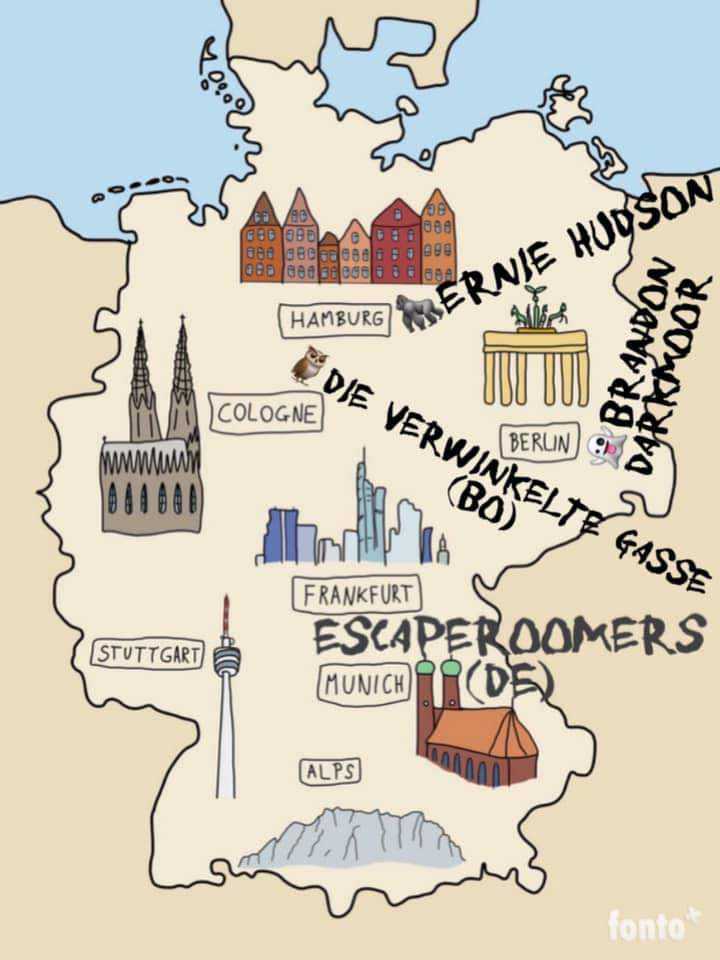 ERNIE HUDSON
HAMBURG
BRANDON
DARKMOOR
COLOGNE
DIE VERWINKELTE GASSE
(BO)
BERLIN
FRANKFURT
ESCAPEROOMERS
(DE)
STUTTGART
MUNICH
ALPS
fonto+